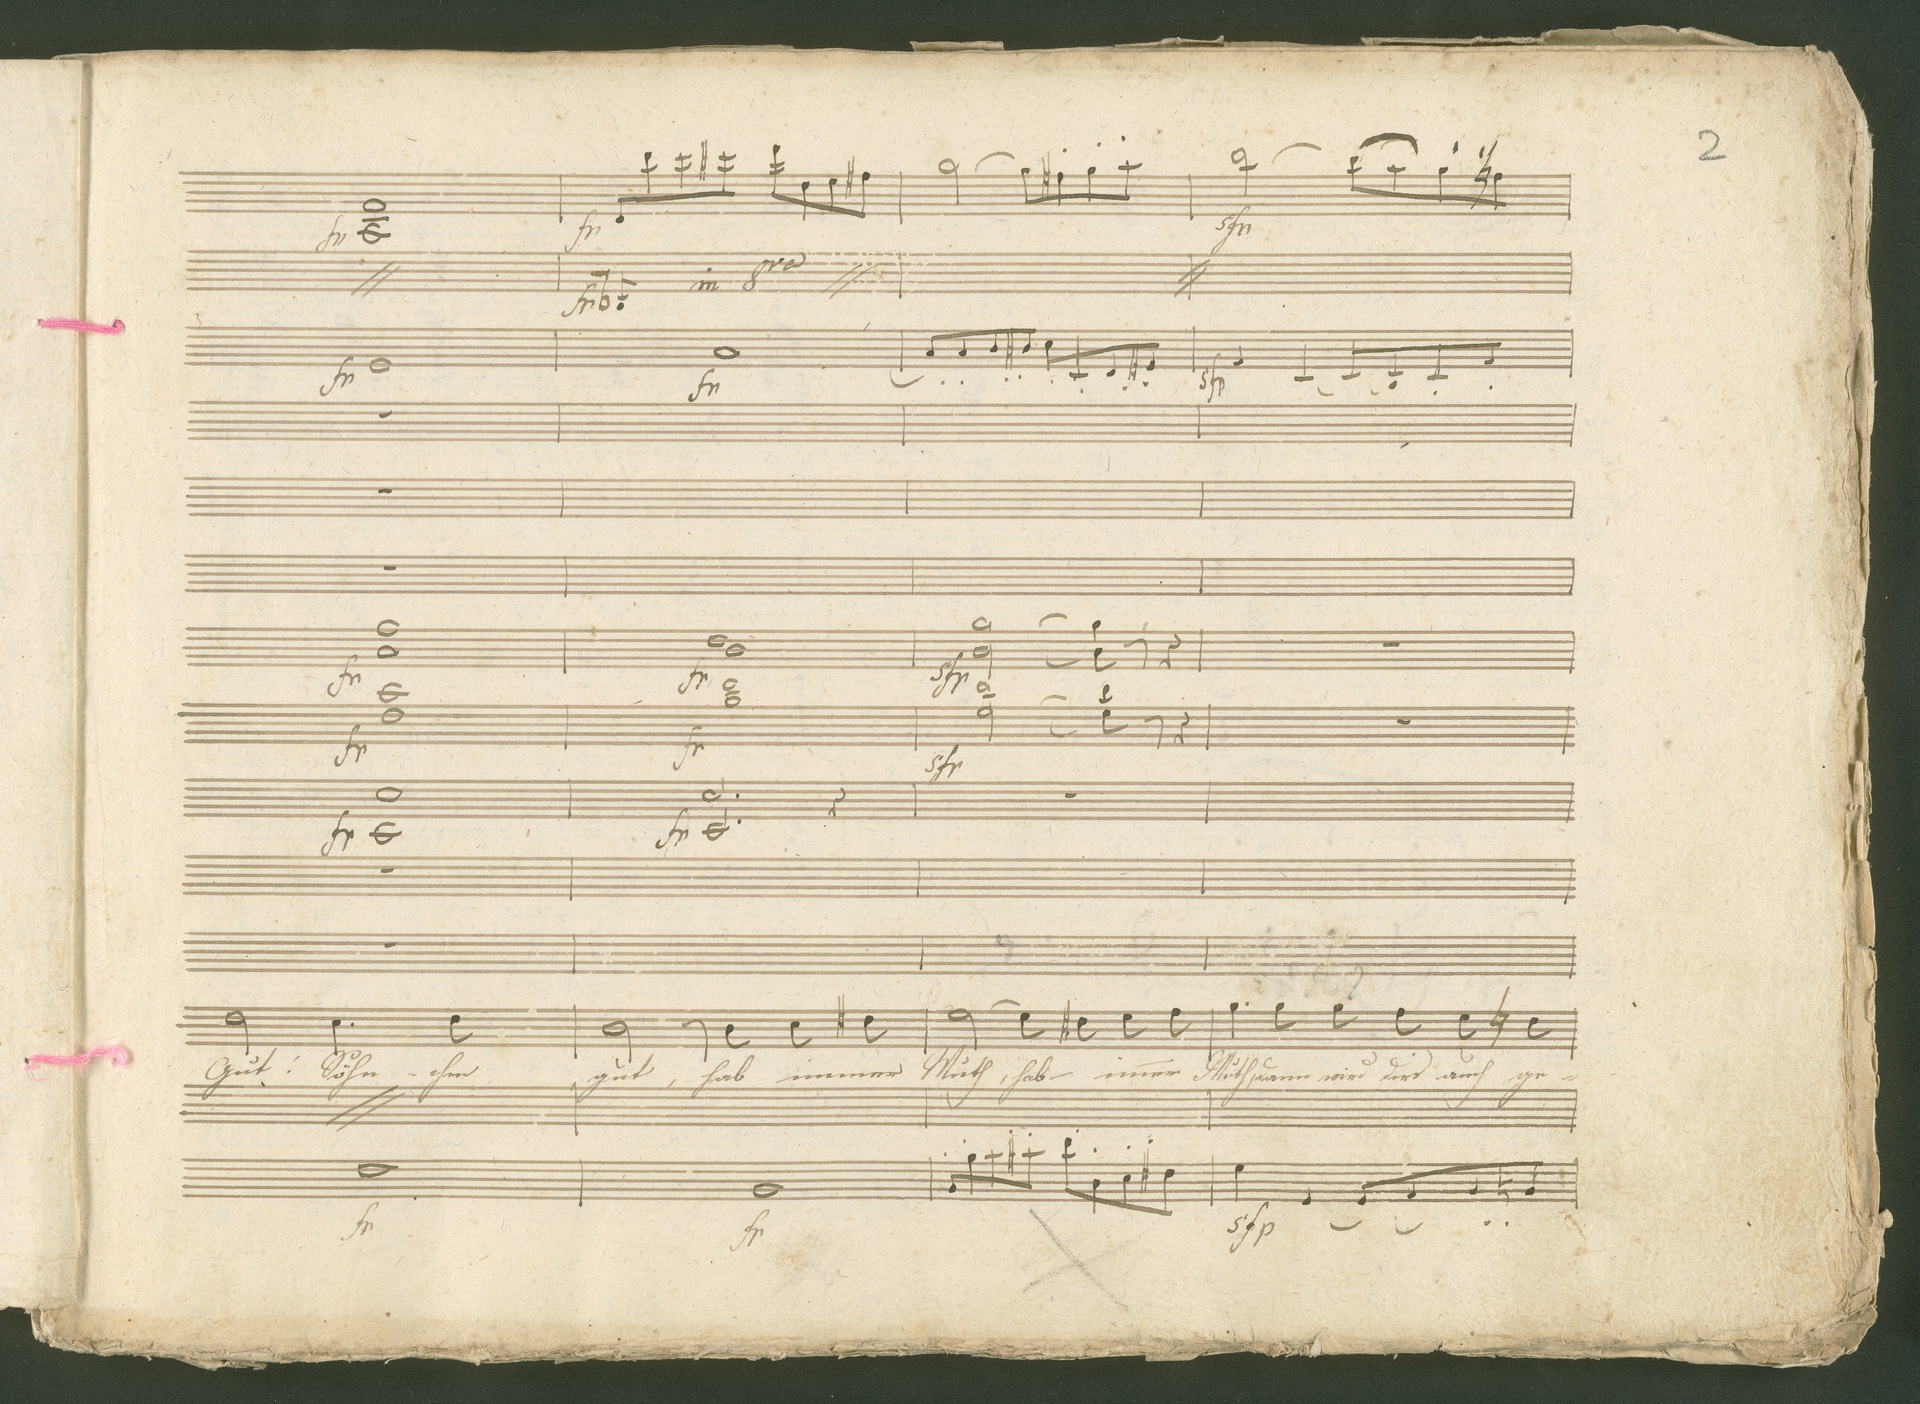 2
fp fp sfp
fp in 8va
fp fp sfp
fp fp sfp
fp fp sfp
fp fp
gut! Söhn - chen gut, hab immer Muth, hab immer Muth, dann wird dirs auch ge -
fp fp sfp